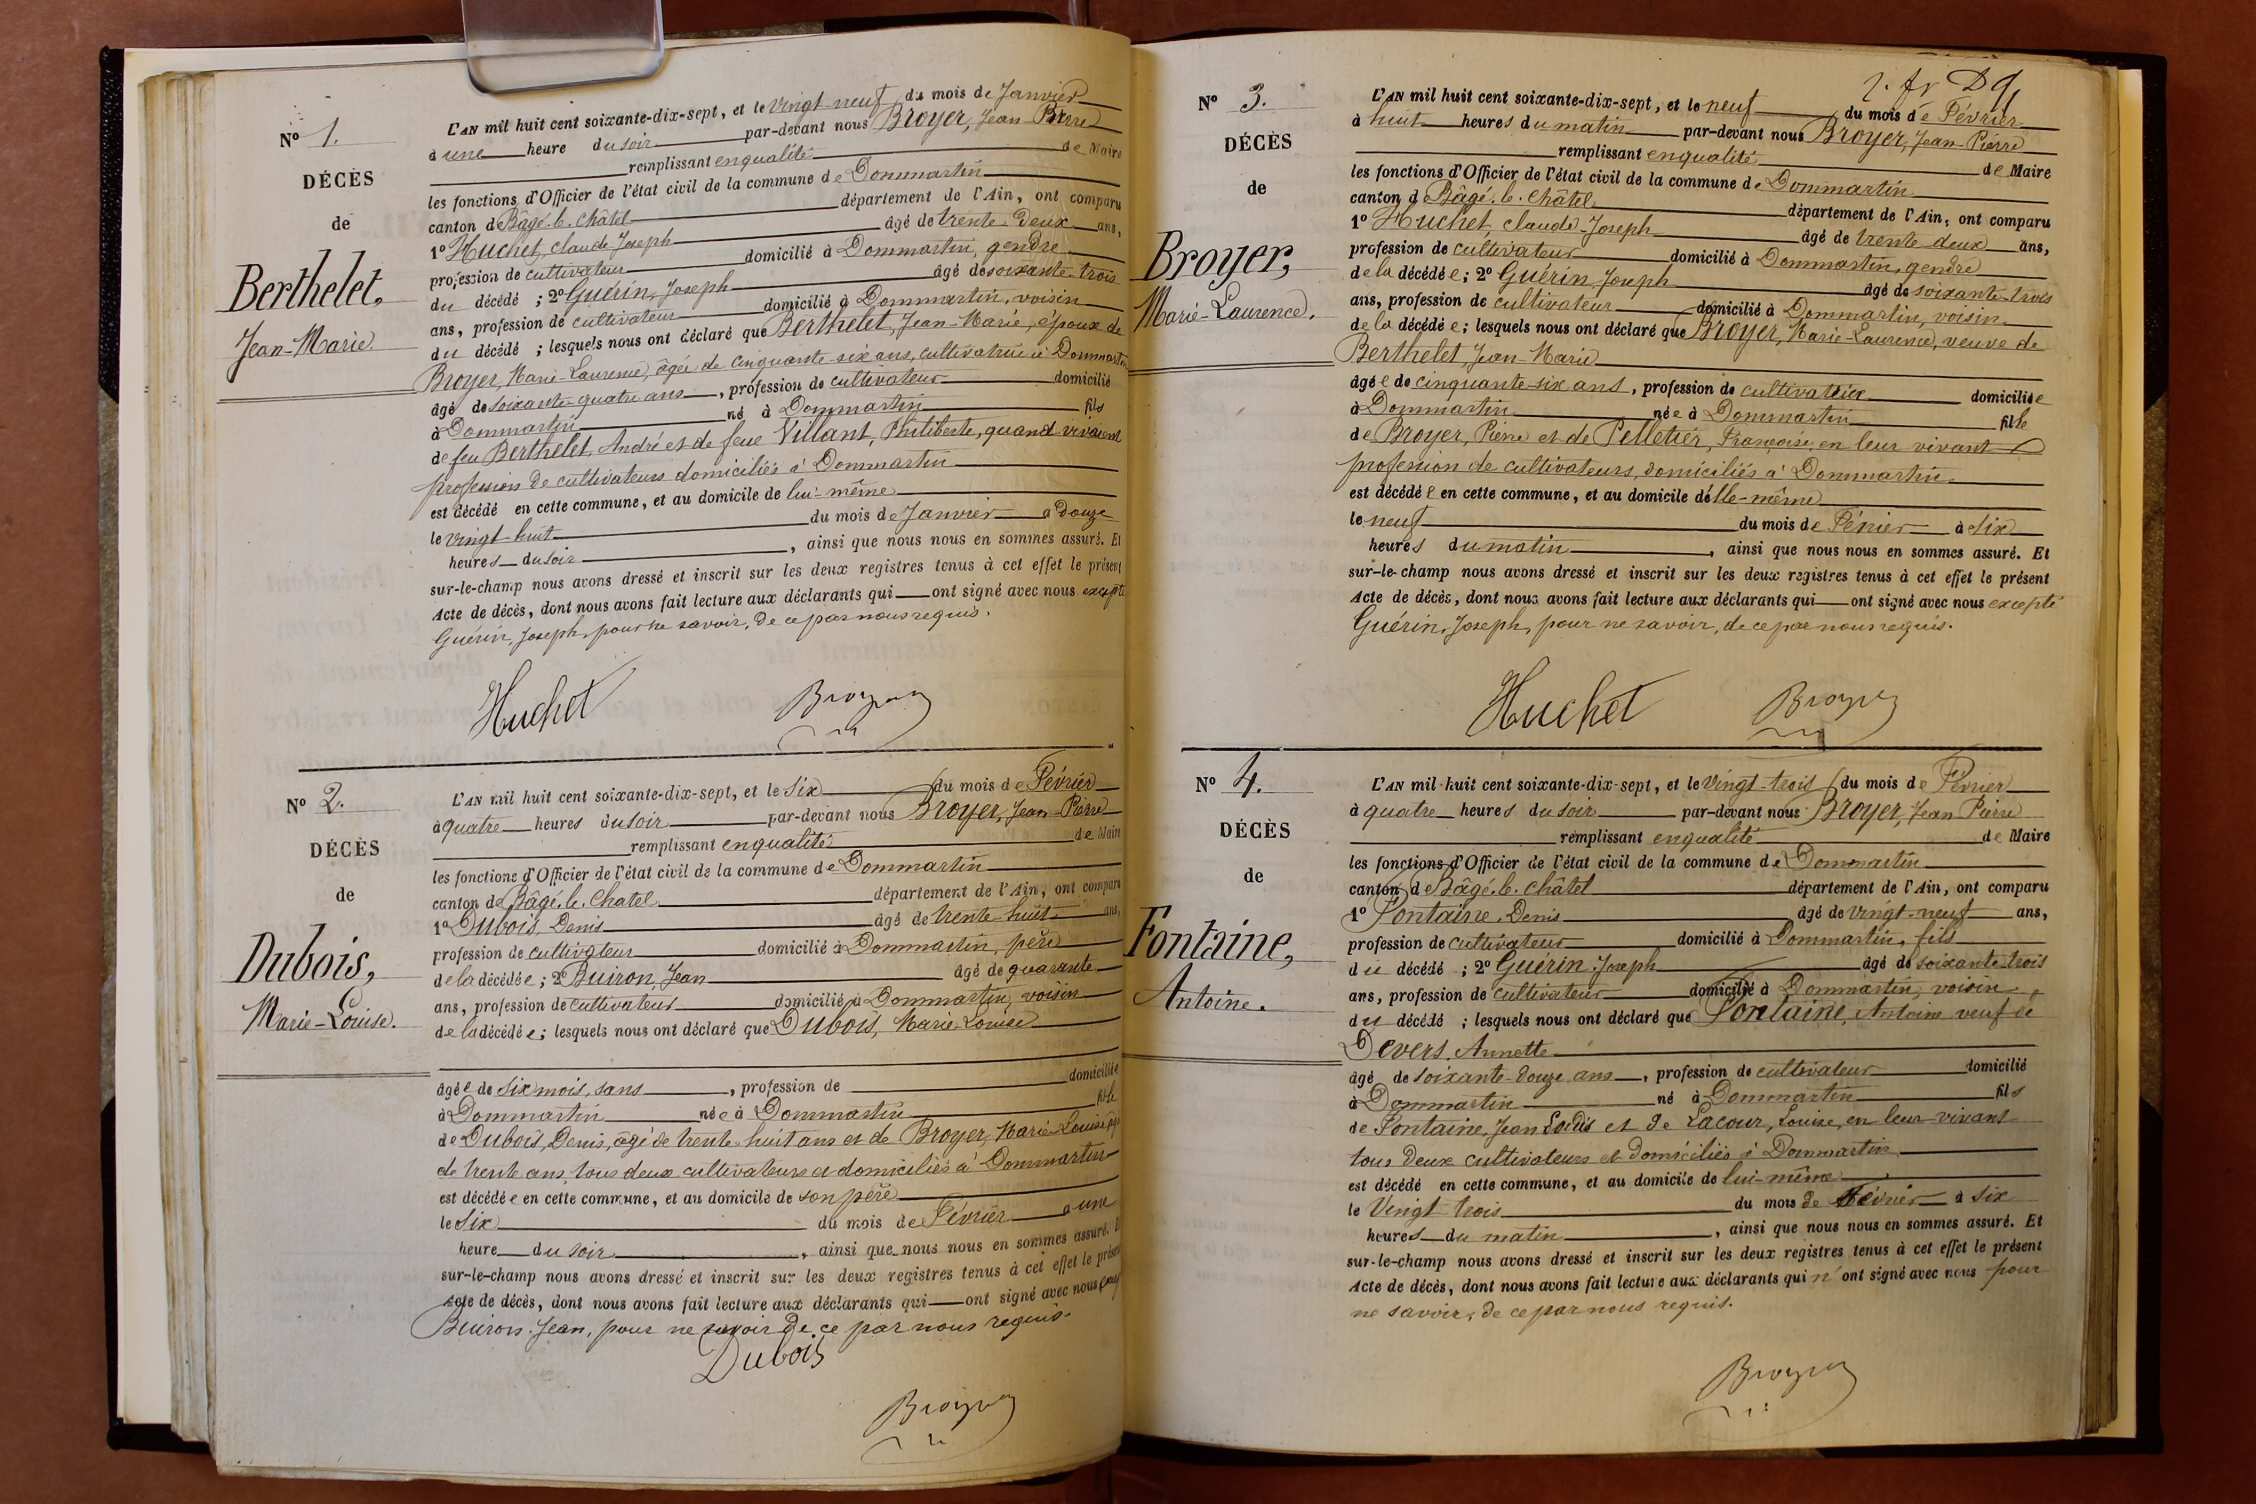 N° 1.
DÉCÈS
de
Berthelet,
Jean-Marie.
L'AN mil huit cent soixante-dix-sept, et le vingt-neuf du mois de Janvier
à une heure du soir par-devant nous Broyer, Jean-Pierre
remplissant en qualité de Maire
les fonctions d'Officier de l'état civil de la commune de Dommartin
canton de Bâgé-le-Châtel département de l'Ain, ont comparu
1° Huchet, Claude Joseph âgé de trente-deux ans,
profession de cultivateur domicilié à Dommartin, gendre
du décédé ; 2° Guérin, Joseph âgé de soixante-trois
ans, profession de cultivateur domicilié à Dommartin, voisin
du décédé ; lesquels nous ont déclaré que Berthelet, Jean-Marie, époux de
Broyer, Marie-Laurence, âgée de cinquante-six ans, cultivatrice à Dommartin
âgé de soixante-quatre ans, profession de cultivateur domicilié
à Dommartin né à Dommartin fils
de feu Berthelet, André et de feue Villant, Philiberte, quand vivaient
profession de cultivateurs domiciliés à Dommartin
est décédé en cette commune, et au domicile de lui-même
le vingt-huit du mois de Janvier à douze
heures du soir, ainsi que nous nous en sommes assuré. Et
sur-le-champ nous avons dressé et inscrit sur les deux registres tenus à cet effet le présent
Acte de décès, dont nous avons fait lecture aux déclarants qui ont signé avec nous excepté
Guérin, Joseph, pour ne savoir, de ce par nous requis.
Huchet Broyer
N° 2.
DÉCÈS
de
Dubois,
Marie-Louise.
L'AN mil huit cent soixante-dix-sept, et le six du mois de Février
à quatre heures du soir par-devant nous Broyer, Jean-Pierre
remplissant en qualité de Maire
les fonctions d'Officier de l'état civil de la commune de Dommartin
canton de Bâgé-le-Chatel département de l'Ain, ont comparu
1° Dubois, Denis âgé de trente-huit ans,
profession de cultivateur domicilié à Dommartin, père
de la décédée ; 2° Buiron, Jean âgé de quarante
ans, profession de cultivateur domicilié à Dommartin, voisin
de la décédée ; lesquels nous ont déclaré que Dubois, Marie-Louise
âgée de six mois, sans, profession de domiciliée
à Dommartin née à Dommartin fille
de Dubois, Denis, âgé de trente-huit ans et de Broyer, Marie-Louise, âgée
de trente ans, tous deux cultivateurs et domiciliés à Dommartin
est décédée en cette commune, et au domicile de son père
le six du mois de Février à une
heure du soir, ainsi que nous nous en sommes assuré. Et
sur-le-champ nous avons dressé et inscrit sur les deux registres tenus à cet effet le présent
Acte de décès, dont nous avons fait lecture aux déclarants qui ont signé avec nous
Buiron, Jean, pour ne savoir de ce par nous requis.
Dubois
Broyer
N° 3.
DÉCÈS
de
Broyer,
Marie-Laurence.
L'AN mil huit cent soixante-dix-sept, et le neuf du mois de Février
à huit heures du matin par-devant nous Broyer, Jean-Pierre
remplissant en qualité de Maire
les fonctions d'Officier de l'état civil de la commune de Dommartin
canton d Bâgé-le-Châtel département de l'Ain, ont comparu
1° Huchet, Claude-Joseph âgé de trente-deux ans,
profession de cultivateur domicilié à Dommartin, gendre
de la décédée ; 2° Guérin, Joseph âgé de soixante-trois
ans, profession de cultivateur domicilié à Dommartin, voisin
de la décédée ; lesquels nous ont déclaré que Broyer, Marie-Laurence, veuve de
Berthelet, Jean-Marie
âgée de cinquante-six ans, profession de cultivatrice domiciliée
à Dommartin née à Dommartin fille
de Broyer, Pierre et de Pelletier, Françoise, en leur vivant
profession de cultivateurs, domiciliés à Dommartin
est décédée en cette commune, et au domicile d'elle-même
le neuf du mois de Février à six
heures du matin, ainsi que nous nous en sommes assuré. Et
sur-le-champ nous avons dressé et inscrit sur les deux registres tenus à cet effet le présent
Acte de décès, dont nous avons fait lecture aux déclarants qui ont signé avec nous excepté
Guérin, Joseph, pour ne savoir, de ce par nous requis.
Huchet Broyer
N° 4.
DÉCÈS
de
Fontaine,
Antoine.
L'AN mil huit cent soixante-dix-sept, et le vingt-trois du mois de Février
à quatre heures du soir par-devant nous Broyer, Jean Pierre
remplissant en qualité de Maire
les fonctions d'Officier de l'état civil de la commune de Dommartin
canton de Bâgé-le-Châtel département de l'Ain, ont comparu
1° Fontaine, Denis âgé de vingt-neuf ans,
profession de cultivateur domicilié à Dommartin, fils
du décédé ; 2° Guérin, Joseph âgé de soixante-trois
ans, profession de cultivateur domicilié à Dommartin, voisin
du décédé ; lesquels nous ont déclaré que Fontaine, Antoine veuf de
Devers, Annette
âgé de soixante-douze ans, profession de cultivateur domicilié
à Dommartin né à Dommartin fils
de Fontaine, Jean et de Lacour, Louise, en leur vivant
tous deux cultivateurs et domiciliés à Dommartin
est décédé en cette commune, et au domicile de lui-même
le Vingt trois du mois de Février à six
heures du matin, ainsi que nous nous en sommes assuré. Et
sur-le-champ nous avons dressé et inscrit sur les deux registres tenus à cet effet le présent
Acte de décès, dont nous avons fait lecture aux déclarants qui n'ont signé avec nous pour
ne savoir, de ce par nous requis.
Broyer